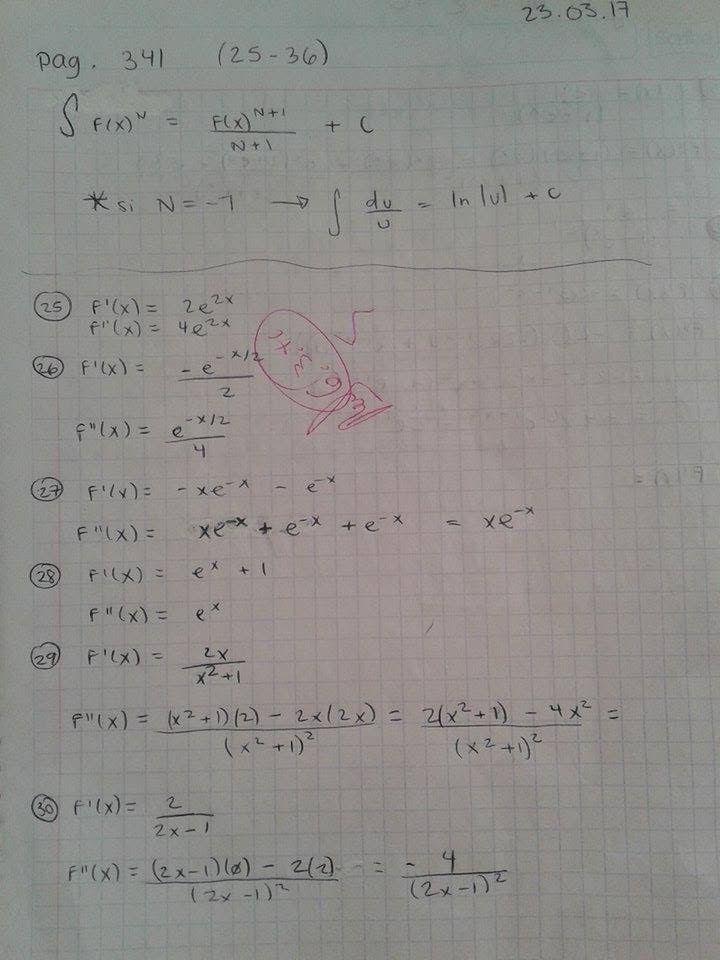 23.03.17
pag. 341 (25-36)
∫ F(x)^N = F(x)^(N+1) / (N+1) + C
* si N = -1 → ∫ du/u = ln |u| + C
25 F'(x) = 2e^(2x)
F''(x) = 4e^(2x)
26 F'(x) = -e^(-x/2) / 2
F''(x) = e^(-x/2) / 4
27 F'(x) = -xe^(-x) - e^(-x)
F''(x) = xe^(-x) + e^(-x) + e^(-x) = xe^(-x)
28 F'(x) = e^x + 1
F''(x) = e^x
29 F'(x) = 2x / (x²+1)
F''(x) = (x²+1)(2) - 2x(2x) / (x²+1)² = 2(x²+1) - 4x² / (x²+1)² =
30 F'(x) = 2 / (2x-1)
F''(x) = (2x-1)(0) - 2(2) / (2x-1)² = - 4 / (2x-1)²